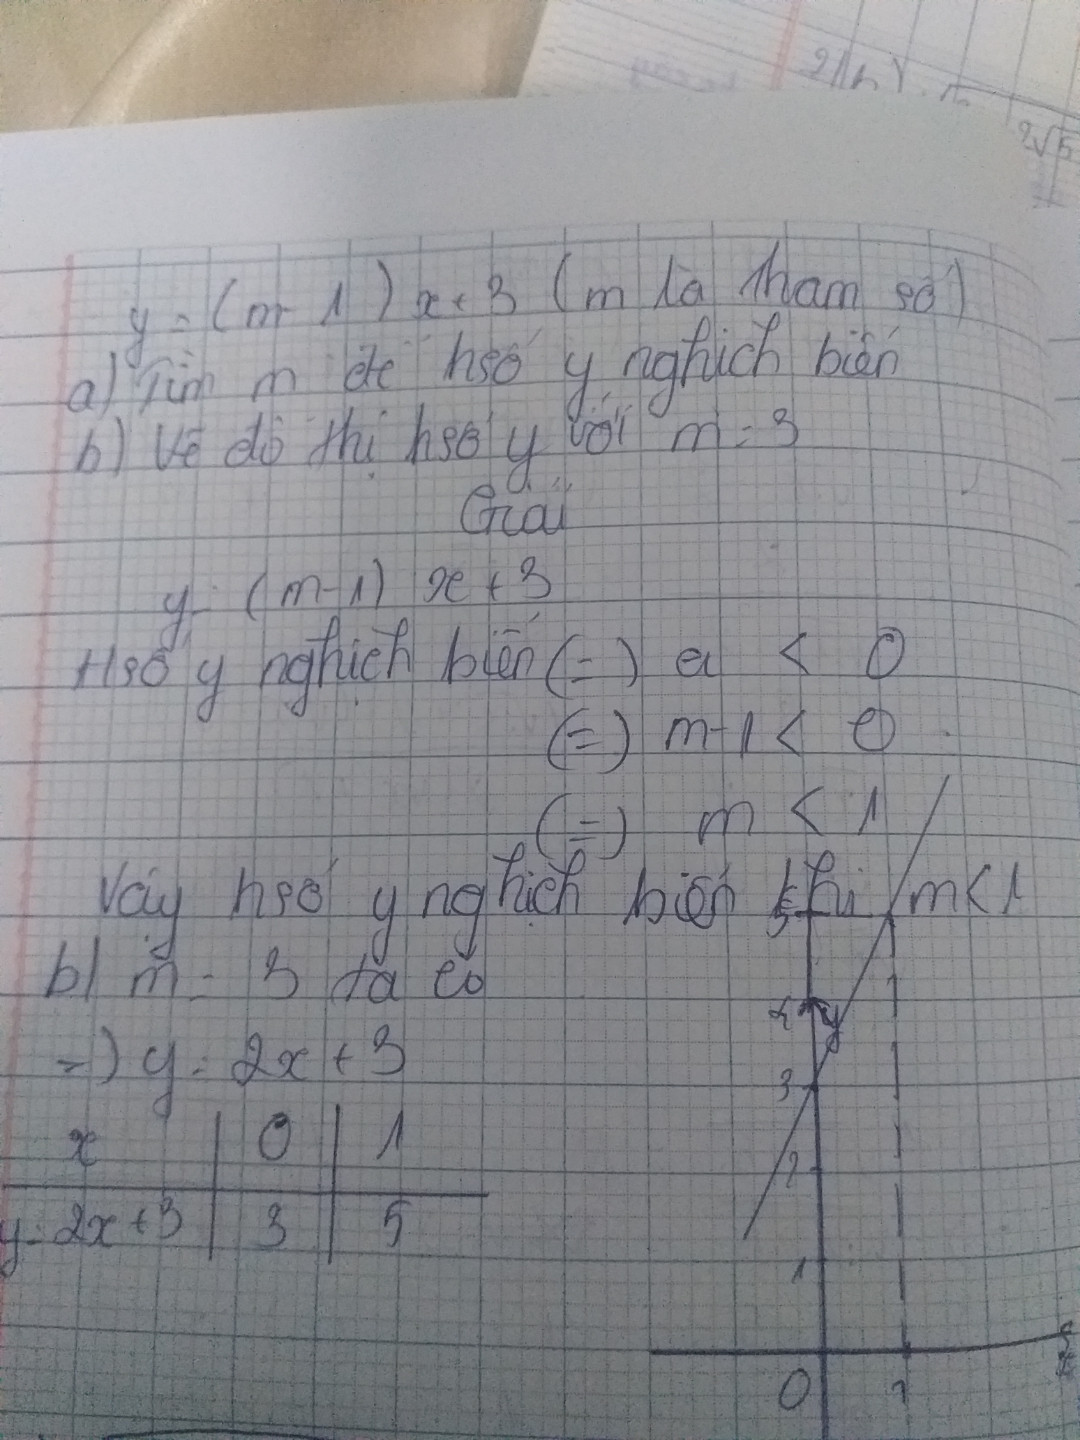 2√5
y = (m-1)x+3 (m là tham số)
a) Tìm m để hsố y nghịch biến
b) Vẽ đồ thị hsố y với m = 3
Giải
y = (m-1) x + 3
Hsố y nghịch biến (=) a < 0
(=) m-1 < 0
(=) m < 1
Vậy hsố y nghịch biến khi m<1
b) m = 3 ta có
=) y = 2x + 3
x | 0 | 1
y = 2x+3 | 3 | 5
5
4 y
3
2
1
0 1